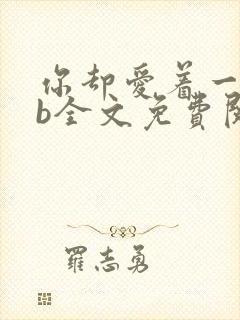 你却爱着一
b全文免費閱
羅志勇